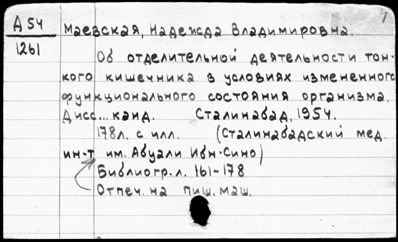 Д 54
1261
Маевская, Надежда Владимировна.
Об отделительной деятельности тон-
кого кишечника в условиях измененного
функционального состояния организма.
Дисс... канд. Сталинабад, 1954.
178л. с илл. (Сталинабадский мед.
ин-т им. Абуали Ибн-Сино)
Библиогр. л. 161-178
Отпеч. на пиш. маш.